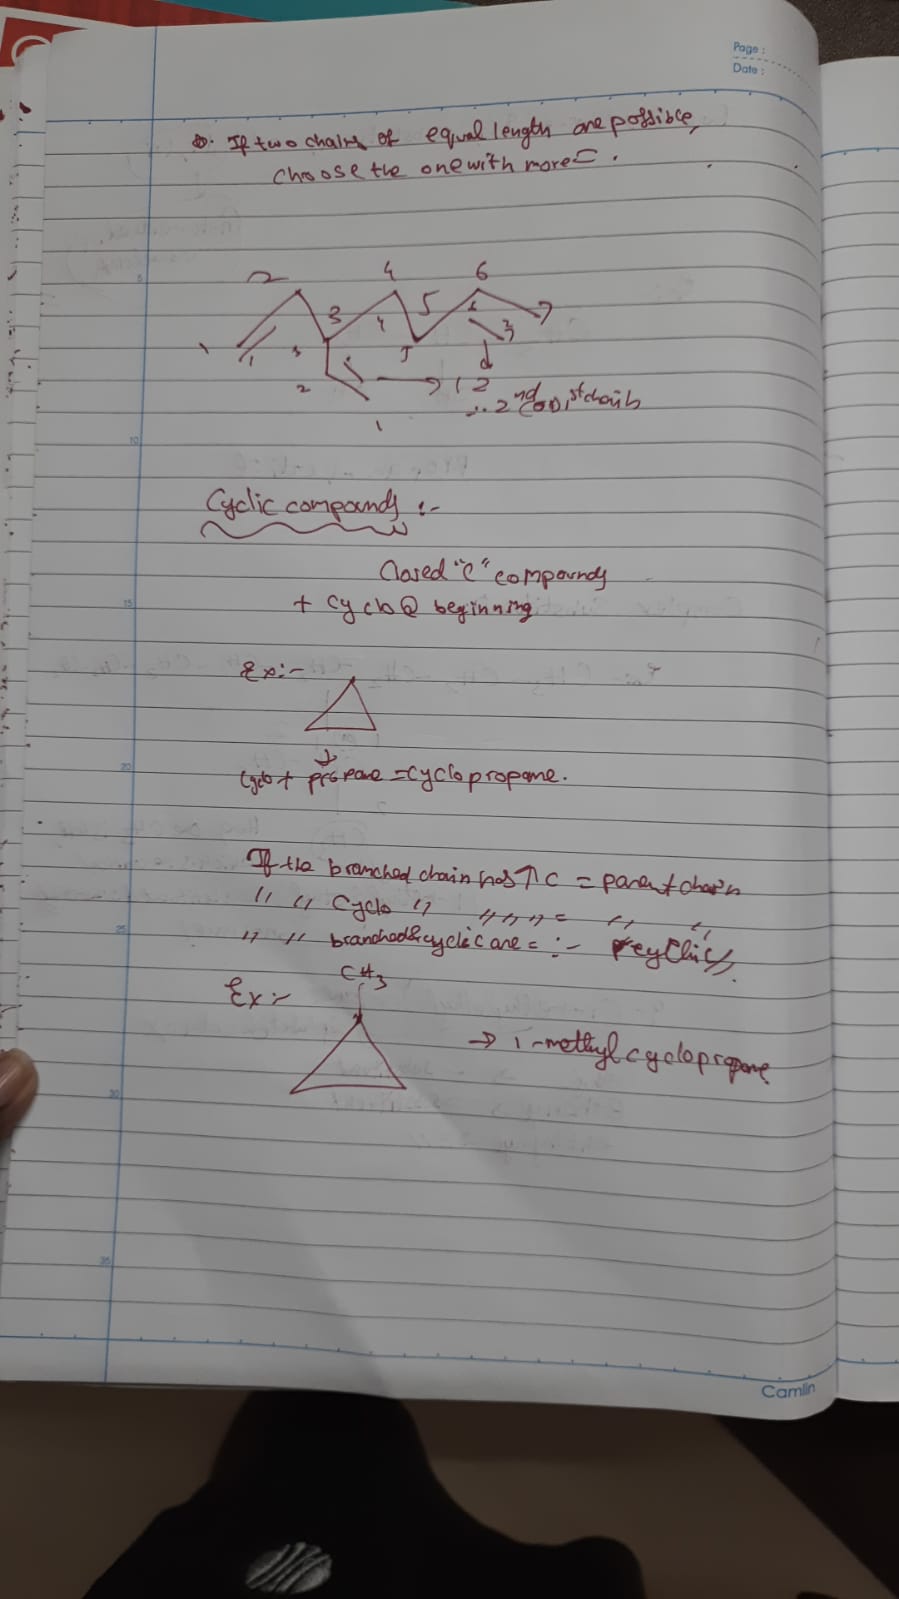 Page :
Date :
If two chains of equal length are possible,
choose the one with more = .
2 4 6
3 5
1 4
1 3 5
2 1 2
1
∴ 2nd (or) 1st chain
Cyclic compounds :-
Closed "C" compounds
+ Cyclo @ beginning
Ex:-
Cyclo + propane = cyclopropane.
If the branched chain has ↑ C = parent chain
" " Cyclo " " " " = " "
" " branched & cyclic C are = :-
CH3
Ex :-
→ 1-methyl cyclopropane
5
10
15
20
25
30
35
Camlin